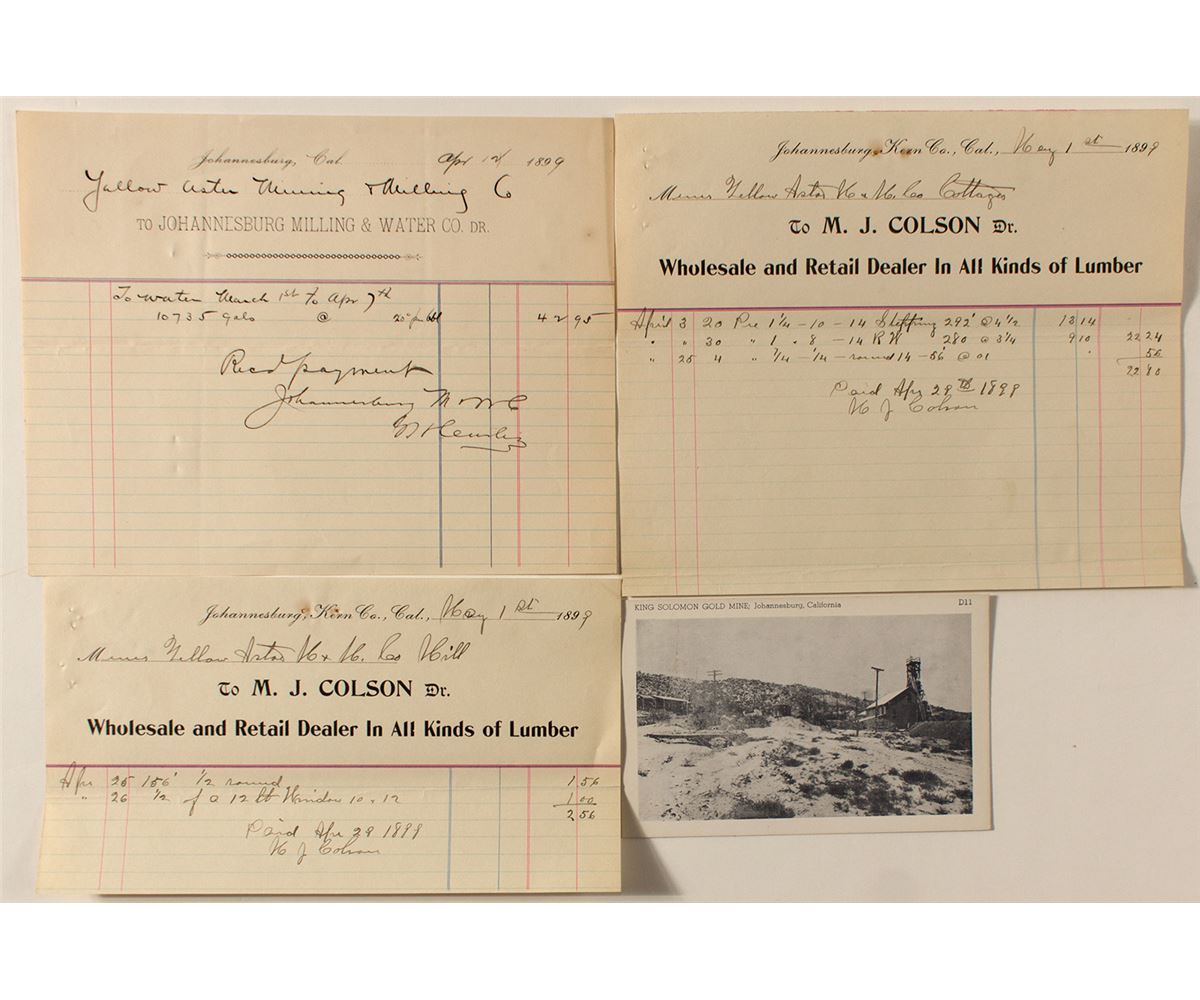 Johannesburg, Cal. Apr 12 1899
Yellow Aster Mining & Milling Co
TO JOHANNESBURG MILLING & WATER CO. DR.
To water March 1st to Apr 7th
10735 gals @ 20c per bbl 42 95
Recd payment
Johannesburg M & W C
Johannesburg, Kern Co., Cal., May 1st 1899
Messrs Yellow Aster M & M. Co Cottages
To M. J. COLSON Dr.
Wholesale and Retail Dealer In All Kinds of Lumber
April 3 20 Pcs 1¼ - 10 - 14 Stepping 292' @ 4½ 13 14
" " 30 " 1 . 8 - 14 R W 280 @ 3¼ 9 10 22 24
" 25 4 " ¼ - ¼ - round 14 - 56' @ 01 56
22 80
Paid Apr 29th 1899
M J Colson
Johannesburg, Kern Co., Cal., May 1st 1899
Messrs Yellow Aster M & M. Co Mill
To M. J. COLSON Dr.
Wholesale and Retail Dealer In All Kinds of Lumber
Apr 25 156' ½ round 1 56
" 26 ½ of a 12 lt Window 10 x 12 1 00
2 56
Paid Apr 29 1899
M J Colson
KING SOLOMON GOLD MINE; Johannesburg, California D11